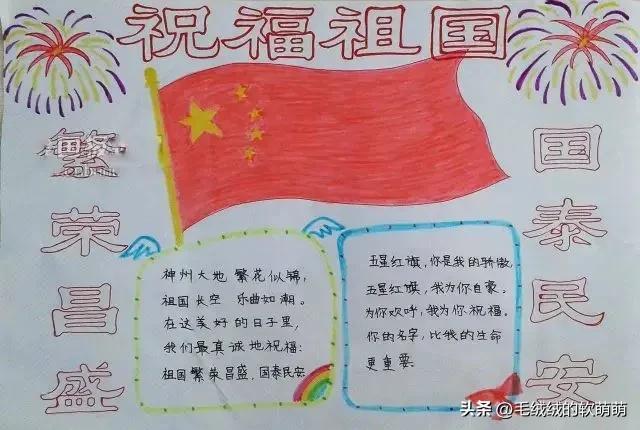 祝福祖国
繁荣昌盛
国泰民安
神州大地 繁花似锦，
祖国长空 乐曲如潮。
在这美好的日子里，
我们最真诚地祝福：
祖国繁荣昌盛，国泰民安
五星红旗，你是我的骄傲，
五星红旗，我为你自豪。
为你欢呼，我为你祝福。
你的名字，比我的生命
更重要
头条 @毛绒绒的软萌萌